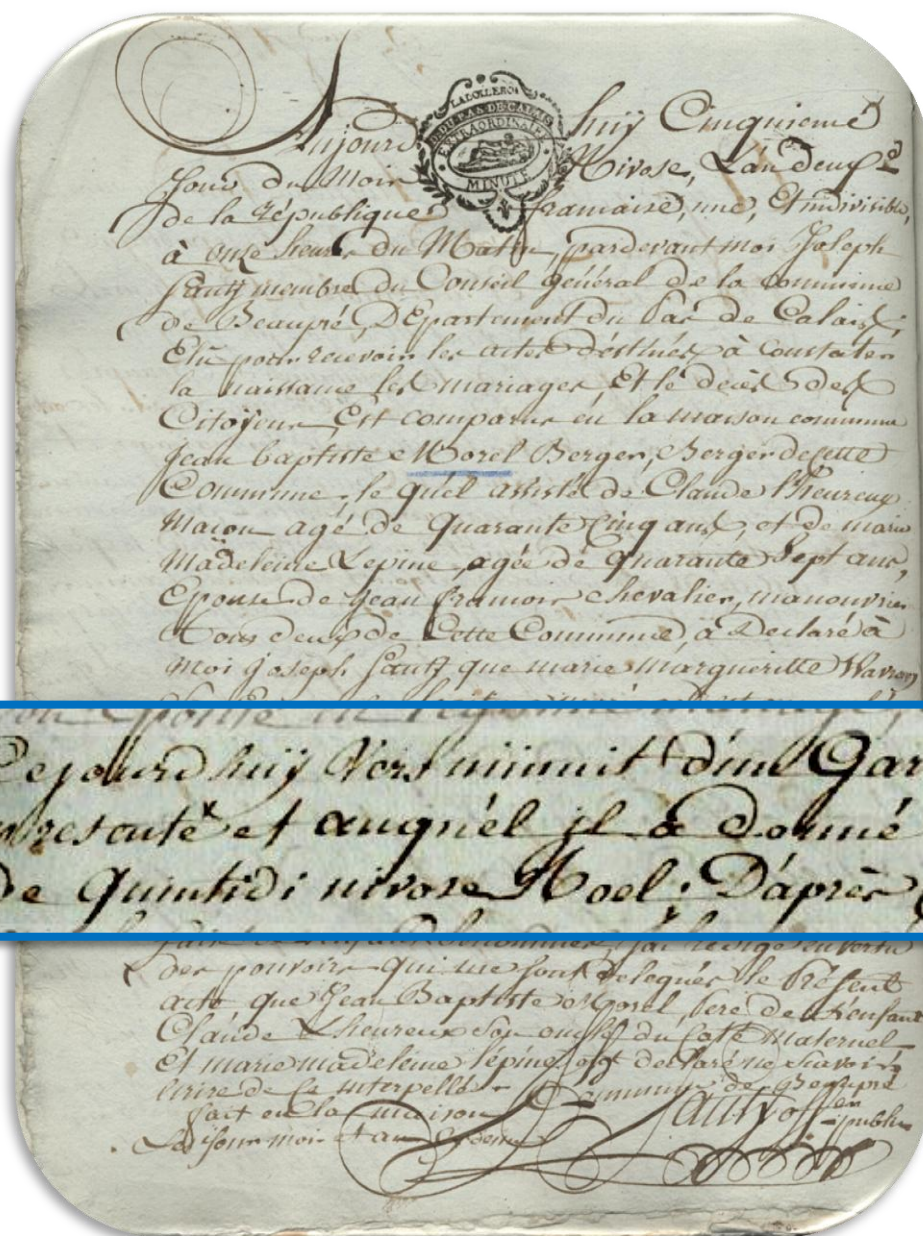 Aujourd'huy Cinquieme
Jour du Mois Nivose, L'an deux
de la République française, une, Et indivisible,
à onze heure du Matin, pardevant moi Joseph
Sauty membre du Conseil général de la commune
de Beaupré, Département du Pas de Calais,
Elu pour recevoir les actes destinés à constater
la naissance les mariages, Et le décès des
Citoyens, Est comparu en la maison commune
Jean baptiste Morel Berger, Berger de cette
Commune, le quel assisté de Claude Lheureux
Maçon agé de quarante Cinq ans, et de marie
Madeleine Lepine, agée de quarante Sept ans,
Epouse de jean françois chevalier, manouvrier
tous deux de Cette Commune, à Declaré à
moi joseph Sauty que marie margueritte
Cejourd'huy Vers minuit d'un Gar
presenté et auquel il a donné
de Quintidi nivose Noel; D'après
j'ai redigé en vertu
des pouvoirs qui me sont delegués le Présent
acte que Jean Baptiste Morel, Pere de L'enfant
Claude Lheureux Son oncle du Coté Maternel
Et marie madeleine lépine ont declaré ne scavoir
ecrire de ce interpellé
fait en la maison Commune de Beaupré
Les jour mois et an
Sauty off
en
publi
EXTRAORDINAIRE
MINUTE